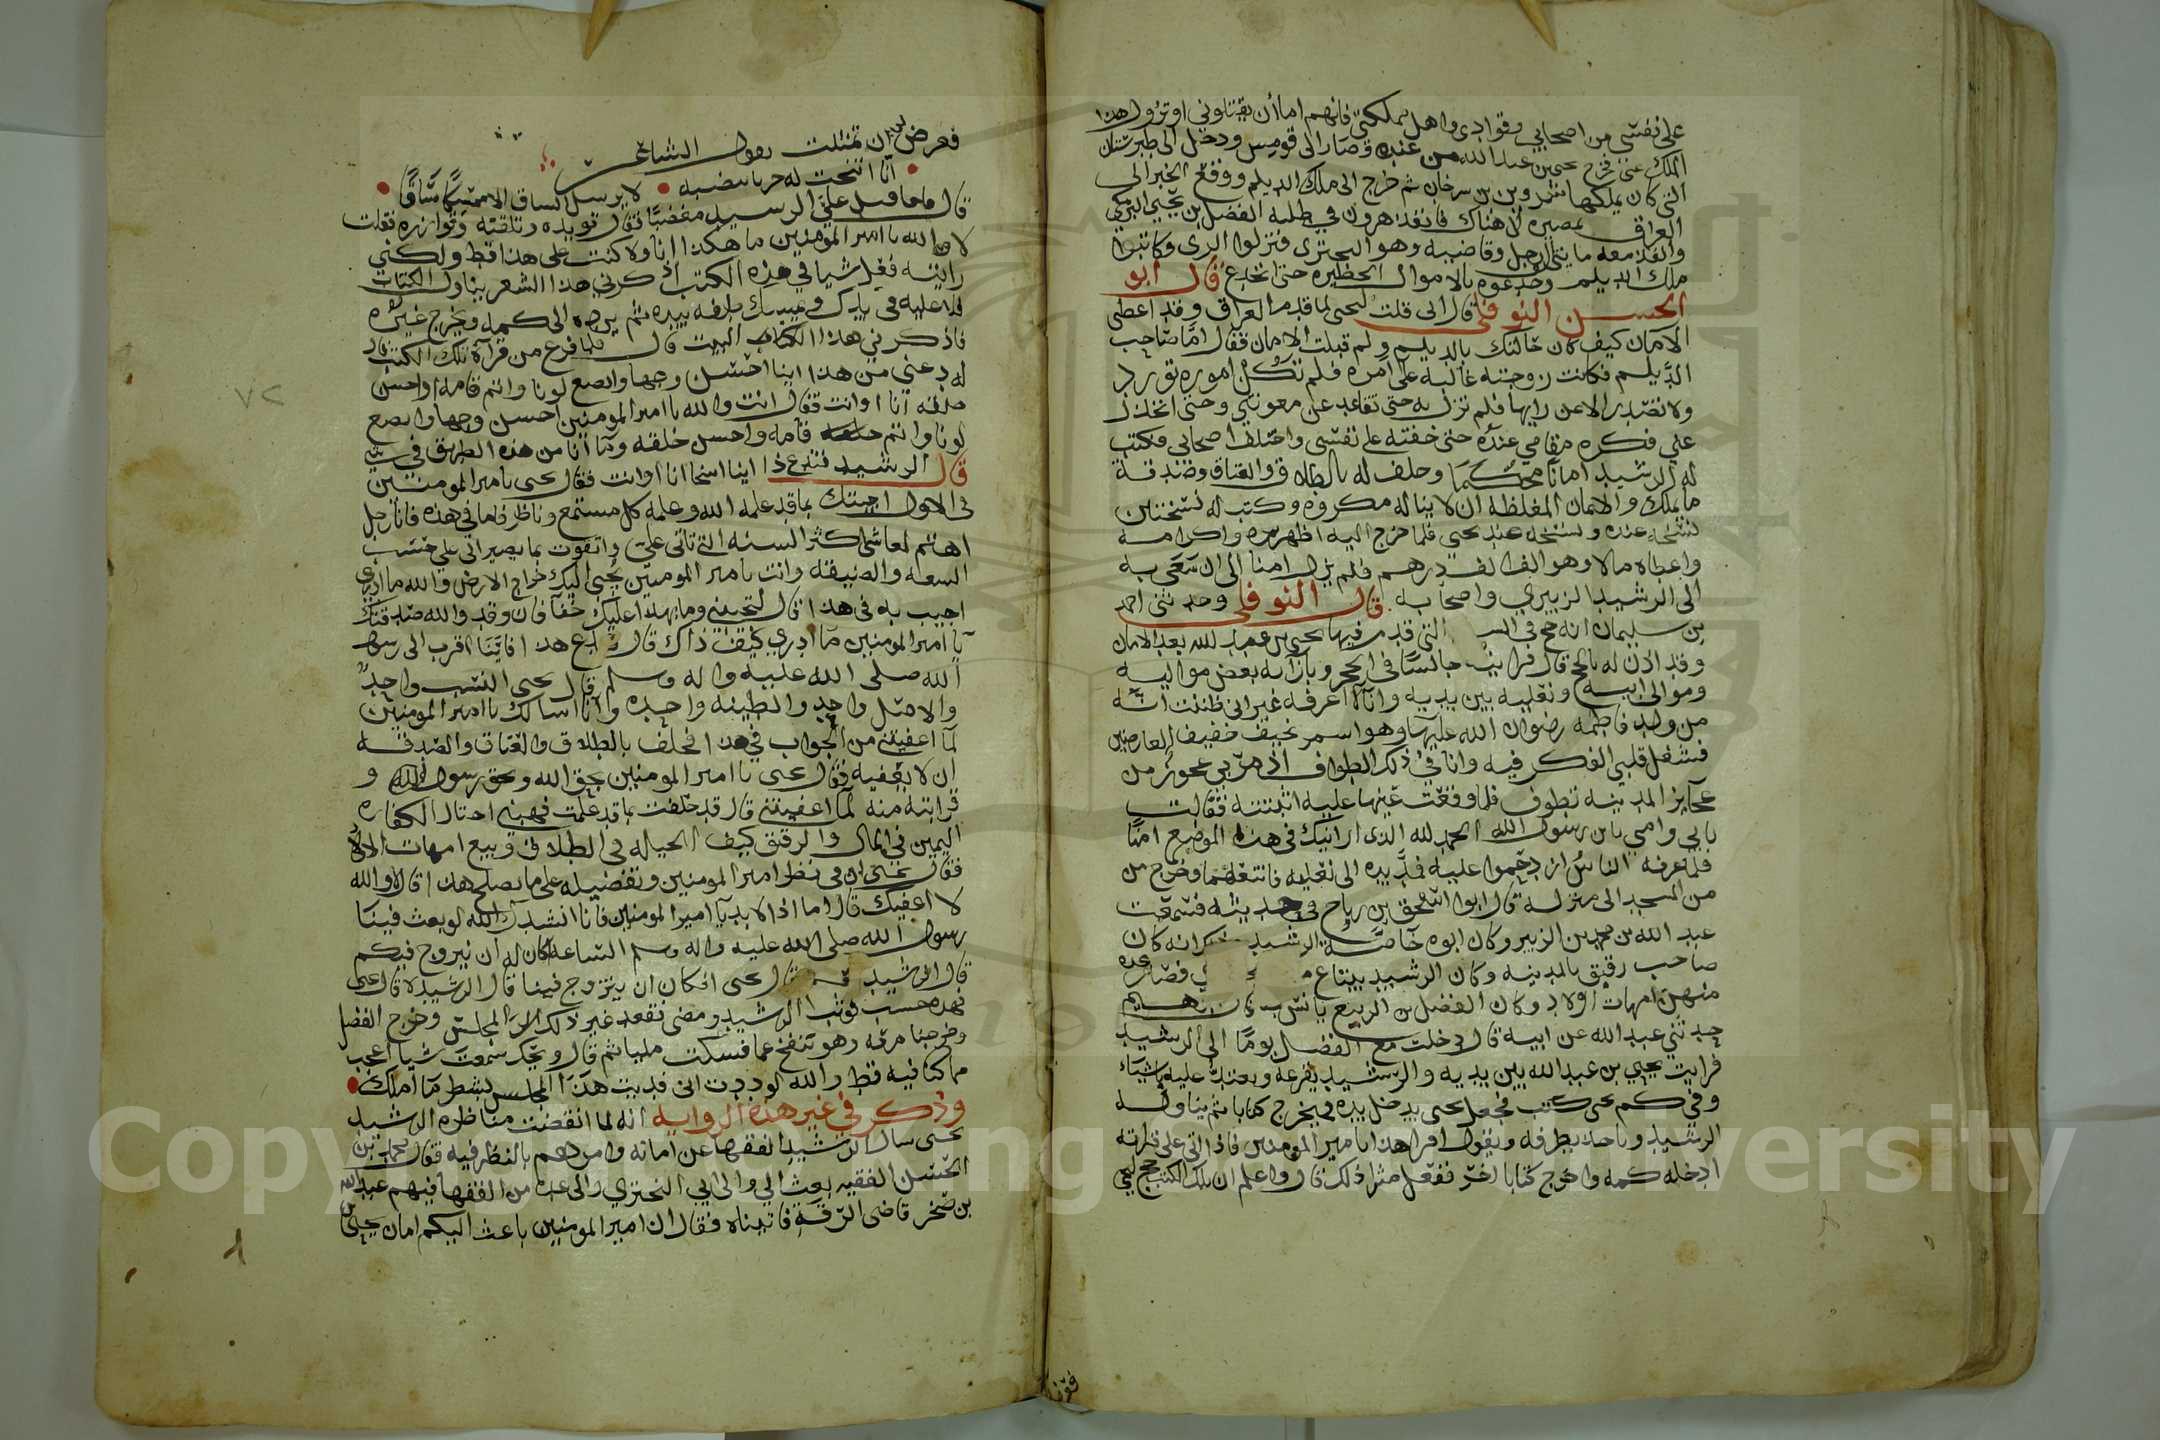 على نفسي من اصحابي وقوادي واهل مملكتي فانهم اما أن يقتلوني او تزول هذا
الملك عني فخرج يحيى بن عبد الله من عنده وصار الى قومس ودخل الى طبرستان
التي كان يملكها بن سرخان ثم خرج الى ملك الديلم ووقع الخبر الى
العراق بمصيره الى هناك فانفذ هرون في طلبه الفضل بن يحيى البرمكي
وانفذ معه مايتي الف رجل وقاضيه وهو البحتري فنزلوا الري وكاتبوا
ملك الديلم وخدعوه بالاموال الخطيرة حتى انخدع قال ابو
الحسن النوفلي قال ابى قلت ليحيى لما قدم العراق وقد اعطى
الامان كيف كان حالتك بالديلم ولم قبلت الامان فقال اما صاحب
الديلم فكانت زوجته غالبه على امره فلم تكن اموره تورد
ولا تصدر الا عن رايها فلم تزل به حتى تقاعد عن معونتي وحتى انخذل
علي فكره مقامي عنده حتى خفته على نفسي واختلف اصحابي فكتب
له الرشيد امانا محكما وحلف له بالطلاق والعتاق وصدقة
ما يملك والايمان المغلظة ان لا يناله مكروه وكتب له نسختين
نسخة عنده ونسخة عند يحيى فلما خرج اليه اظهر بره واكرامه
واعطاه مالا وهو الف الف درهم فلم يزل امنا الى ان سعى به
الى الرشيد الزبيري واصحابه قال النوفلي وحدثني احمد
بن سليمان انه حج في التي قدم فيها يحيى بن عبد الله بعد الامان
وقد اذن له بالحج قال فرايته جالسا في الحجر وبازائه بعض مواليه
وموالي ابيه ونعليه بين يديه وانا لا اعرفه غير اني ظننت انه
من ولد فاطمه رضوان الله عليها وهو اسمر نحيف خفيف العارضين
فشغل قلبي الفكر فيه وانا في ذلك الطواف اذ مر بي عجوز من
عجايز المدينه تطوف فلما وقعت عينها عليه اثبتته فقالت
بابي وامي يا بن رسول الله الحمد لله الذي ارانيك في هذا الموضع امنا
فلما عرفه الناس ازدحموا عليه فمد يده الى نعليه فانتعلهما وخرج من
من المسجد الى منزله قال ابو اسحق بن رياح في حديثه فسمعت
عبد الله بن محمد بن الزبير وكان ابوه خاصة الرشيد انه كان
صاحب رقيق بالمدينه وكان الرشيد يبتاع فصار عده
منهن امهات اولاد وكان الفضل بن الربيع يانس به
حدثني عبد الله عن ابيه قال دخلت مع الفضل يوما الى الرشيد
فرايت يحيى بن عبد الله بين يديه والرشيد يقرعه ويعتد عليه باشياء
وفي كم يحيى كتب فجعل يحيى يدخل يده فيخرج كتابا ثم يناوله
الرشيد وياخذ بطرفه ويقول اقرا هذا يا امير المومنين فاذا اتى على قراته
ادخله كمه واخرج كتابا اخر ففعل مثل ذلك قال واعلم ان تلك الكتب حجج ليحيى
فعرض لي ان تمثلت بقول الشاعر
انا اتيحت له حربا تنضبه لا يرسل الساق الا ممسكا ساقا
قال فاقبل علي الرشيد مغضبا فقال تويده وتلقنه وتوازره فقلت
لا والله يا امير المومنين ما هكذا انا ولا كنت على هذا قط ولكني
رايته فعل شيا في هذه الكتب اذكرني هذا الشعر يناول الكتاب
فلا عليه في يدك ويمسك بطرفه بيده ثم يرده الى كمه ويخرج غيره
فاذكرني هذا البيت قال فلما فرغ من قرآة تلك الكتب قال
له دعني من هذا اينا احسن وجها وانصع لونا واتم قامه واحسن
خلقه انا او انت فقال انت والله يا امير المومنين احسن وجها وانصع
لونا واتم قامه واحسن خلقه وما انا من هذه الطريق في شي
قال الرشيد فدع ذا اينا اسخا انا او انت فقال يحيى يا امير المومنين
في الاول اجبتك بما قد علمه الله وعلمه كل مستمع وناظر فاما في هذه فانا رجل
اهتم لمعاشي اكثر السنه التي تاتي علي واتقوت بما يصير الي على حسب
السعه والضيقه وانت يا امير المومنين يجبى اليك خراج الارض والله ما ادري
اجيب به في هذا قال لتجيبني وما بهذا عليك خفا قال وقد والله صدقتك
يا امير المومنين ما ادري كيف ذاك قال فدع هذا فايّنا اقرب الى رسول
الله صلى الله عليه واله وسلم قال يحيى النسب واحد
والاصل واحد والطينه واحده وانا اسالك يا امير المومنين
لما اعفيتني من الجواب في هذا فحلف بالطلاق والعتاق والصدقه
ان لا يعفيه فقال يحيى يا امير المومنين بحق الله وبحق رسول الله و
قرابته منه لما اعفيتني قال قد حلفت بما قد علمت فهبني احتال لكفاره
اليمين في المال والرقيق كيف الحياله في الطلاق وبيع امهات الاولاد
فقال يحيى ان في نظر امير المومنين وتفضيله على ما يصلح هذا قال لا والله
لا اعفيك قال اما اذا لا بد يا امير المومنين فانا انشدك الله لو بعث فينا
رسول الله صلى الله عليه واله وسلم الساعه اكان له ان يتزوج فيكم
قال الرشيد نعم قال يحيى افكان ان يتزوج فينا قال الرشيد لا قال يحيى
فهذه حسب فوثب الرشيد ومضى فقعد غير ذلك المجلس وخرج الفضل
وخرجنا معه وهو ينفخ غما فسكت مليا ثم قال ويحك سمعت شيا اعجب
مما كنا فيه قط والله لوددت اني فديت هذا المجلس بشطر ما املك
وذكر في غير هذه الروايه انه لما انقضت مناظره الرشيد
يحيى سال الرشيد الفقها عن امانه وامرهم بالنظر فيه فقال محمد بن
الحسن الفقيه بعث الي والى ابي البختري والى عده من الفقها فيهم عبد الله
بن صخر قاضى الرقة فاتيناه فقال ان امير المومنين باعث اليكم امان يحيى بن
٧٢
Copyright © King Saud University